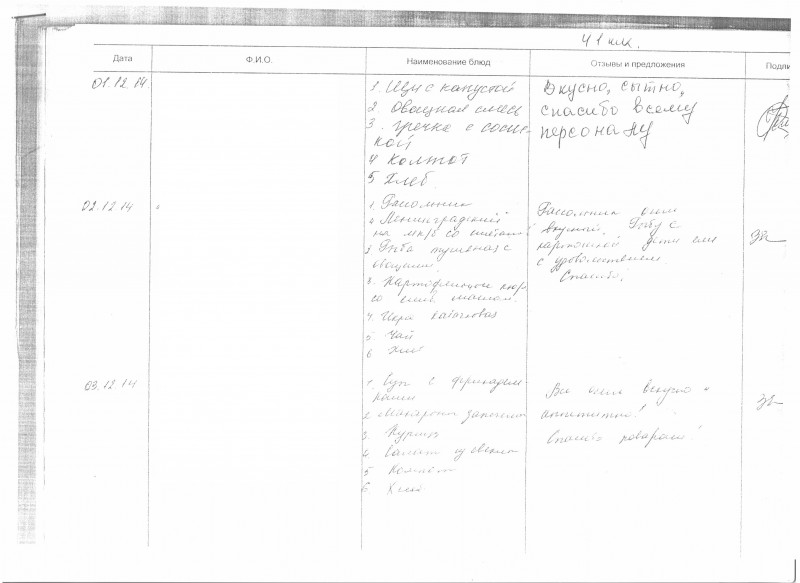 41 кл.
Дата Ф.И.О. Наименование блюд Отзывы и предложения
01.12.14.
1. Щи с капустой
2. Овощная смесь
3. Гречка с сосис-
кой
4 Компот
5 Хлеб.
Вкусно, сытно,
спасибо всему
персоналу
02.12.14
1 Рассольник
Ленинградский
на мк/б со сметаной
3 Рыба тушеная с
овощами.
3. Картофельное пюре
со слив. маслом.
4. Икра кабачковая
5 Чай
6 Хлеб
Рассольник очень
вкусный. Рыбу с
картошкой дети ели
с удовольствием
Спасибо!
03.12.14
1. Суп с фрикадель-
ками
2 Макароны запечен
3 Курица
4 Салат из свеклы
5 Компот
6. Хлеб.
Все очень вкусно и
аппетитно!
Спасибо поварам!